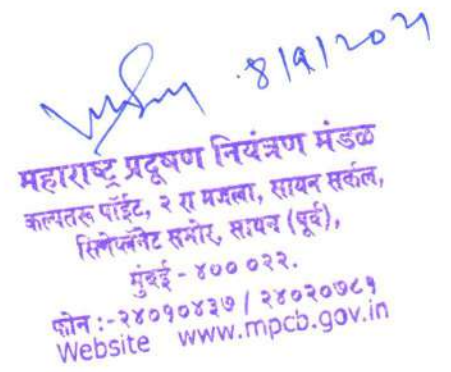 8/9/2021
महाराष्ट्र प्रदूषण नियंत्रण मंडळ
कल्पतरू पॉईंट, २ रा मजला, सायन सर्कल,
सिनेप्लॅनेट समोर, सायन (पूर्व),
मुंबई - ४०० ०२२.
फोन :-२४०१०४३७ / २४०२०७८१
Website www.mpcb.gov.in